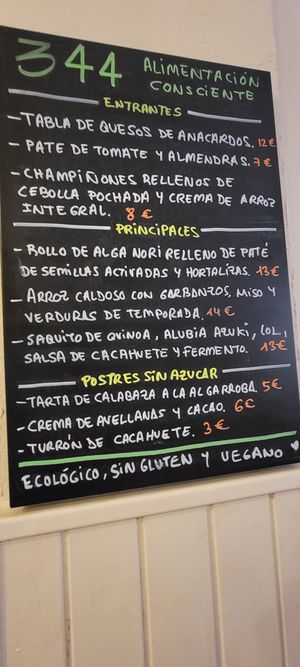 344 ALIMENTACIÓN
CONSCIENTE
ENTRANTES
- TABLA DE QUESOS DE ANACARDOS. 12 €
- PATE DE TOMATE Y ALMENDRAS. 7 €
- CHAMPIÑONES RELLENOS DE
CEBOLLA POCHADA Y CREMA DE ARROZ
INTEGRAL. 8 €
PRINCIPALES
- ROLLO DE ALGA NORI RELLENO DE PATÉ
DE SEMILLAS ACTIVADAS Y HORTALIZAS. 13 €
- ARROZ CALDOSO CON GARBANZOS, MISO Y
VERDURAS DE TEMPORADA. 14 €
- SAQUITO DE QUINOA, ALUBIA AZUKI, COL,
SALSA DE CACAHUETE Y FERMENTO. 13 €
POSTRES SIN AZUCAR
- TARTA DE CALABAZA A LA ALGARROBA. 5 €
- CREMA DE AVELLANAS Y CACAO. 6 €
- TURRÓN DE CACAHUETE. 3 €
ECOLÓGICO, SIN GLUTEN Y VEGANO ♥